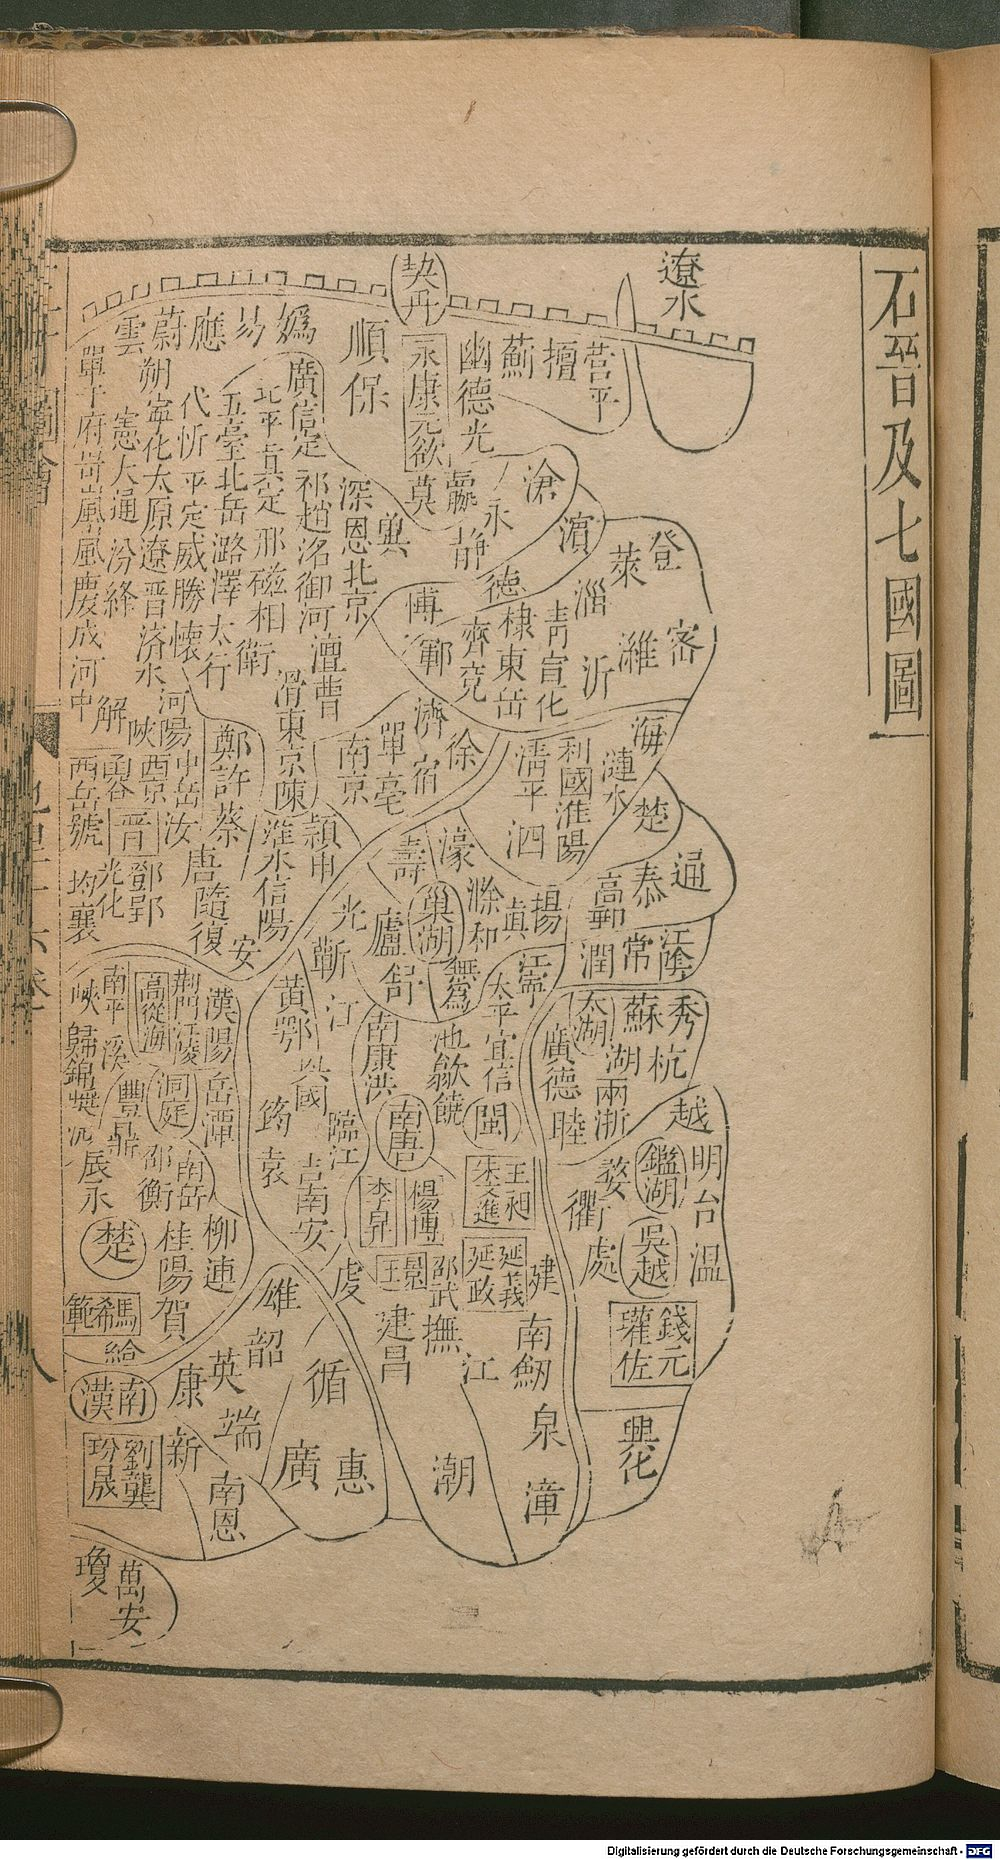 石晉及七國圖
遼水
契丹
營平
檀
薊
幽德光
永康元欲
順保
嬀
易
應
蔚
雲
朔寧化太原遼晉済水
單于府岢嵐嵐慶成河中
憲大通汾絳
代忻平定威勝懷
五臺北岳潞澤太行
北平真定邢磁相衛
廣信定
祁趙洺御河澶曹
深恩北京
莫
瀛
靜
永
滄
濱
德
博
鄆
齊兗
棣東岳
青宣化
淄
萊
登
密
濰
沂
滑東京陳
河陽中岳汝
陝西京
解
西岳虢
晋
鄧郢
光化
均襄
鄭許蔡
唐隨復
安
淮水信陽
潁申
南京
單亳
濟
宿
徐
清平
泗
利國淮陽
漣水
海
楚
通
泰
高郵
揚
真
滁和
濠
壽
巢湖
廬
舒
光
蘄
無爲
江寧
太平宜信
潤
常
江陰
太湖
蘇
秀
杭
湖
兩浙
廣德
睦
越
明台温
鑑湖
婺
衢
處
吳越
錢元
瓘佐
興化
池歙饒
南康洪
南唐
閩
王昶
朱文進
延羲
延政
楊博
李昪
景
王
邵武
撫
建昌
建
南劒
泉
漳
江
潮
黃鄂
江
興國
臨江
筠
袁
吉南安
虔
漢陽
岳潭
荆門江陵
高從誨
南平
峽
歸錦
溪
洞庭
豐鼎
辰永
南岳
邵衡
楚
馬希範
桂陽
賀
柳連
南漢
劉龑
玢晟
康
英
韶
雄
循
廣
惠
端
新
南恩
瓊
萬安
Digitalisierung gefördert durch die Deutsche Forschungsgemeinschaft - DFG